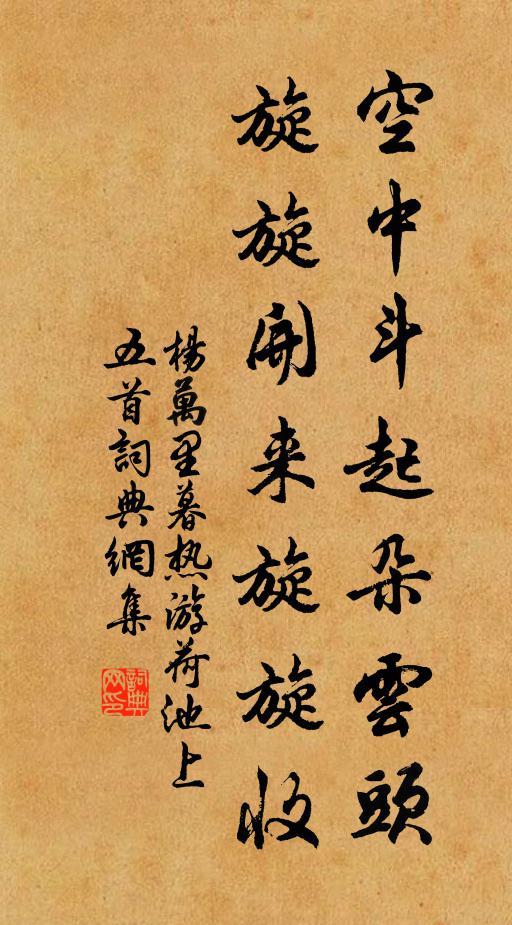 空中斗起朵雲頭
旋旋開来旋旋收
楊萬里暮热游荷池上
五首詞典網集
詞典网印